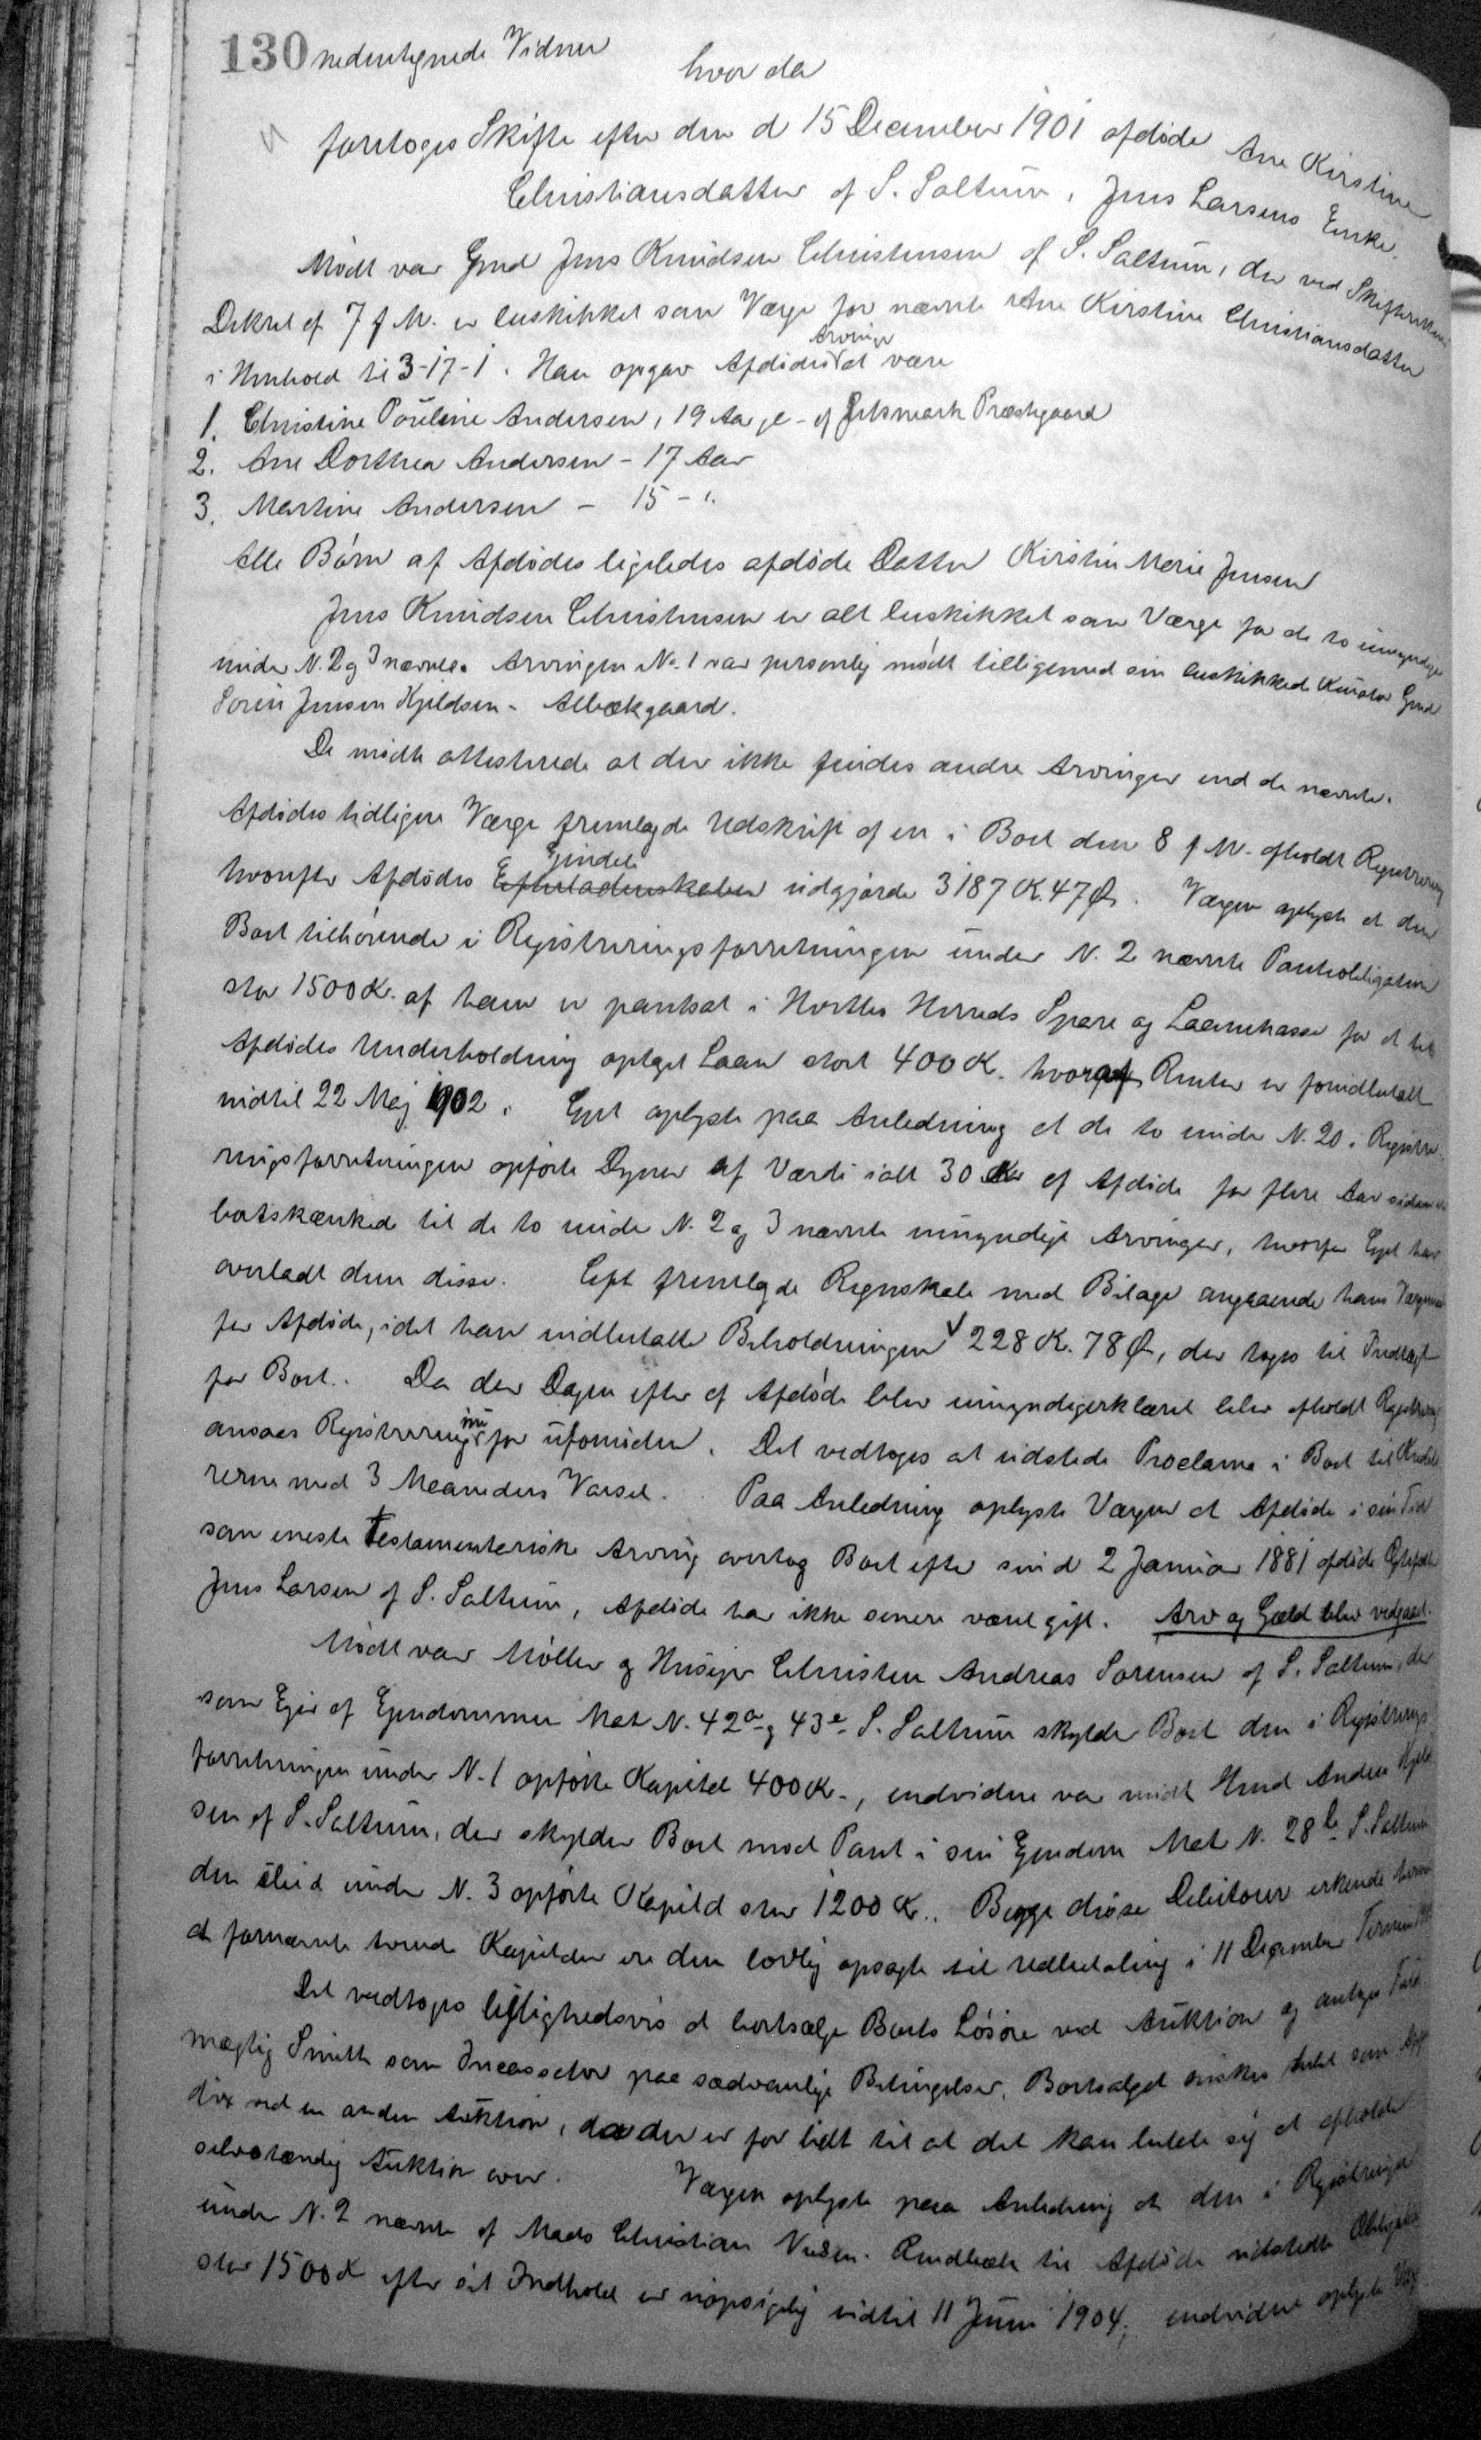 130 nedentegnede Vidner
hvor da
foretoges Skifte efter den d 15 December 1901 afdøde Ane Kirstine
Christiansdatter af S. Saltum, Jens Larsens Enke.
Mødt var Gmd Jens Knudsen Christensen af S. Saltum, der ved Skifterettens
Dekret af 7 f M. er beskikket som Værge for nævnte Ane Kirstine Christiansdatter
i Henhold til 3-17-1. Han opgav Afdødes Arvinger at være
1. Christine Pouline Andersen, 19 Aar gl - af Jetsmark Præstegaard
2. Ane Dorthea Andersen - 17 Aar
3. Martine Andersen - 15 - "
Alle Børn af Afdødes ligeledes afdøde Datter Kirstine Marie Jensen
Jens Knudsen Christensen er alt beskikket som Værge for de to umyndige
under N. 2 og 3 nævnte. Arvingen No. 1 var personlig mødt tilligemed sin beskikkede Kurator Gmd
Søren Jensen Kjeldsen - Albækgaard.
De mødte attesterede at der ikke findes andre Arvinger end de nævnte.
Afdødes tidligere Værge fremlagde Udskrift af en i Boet den 8 f M. afholdt Registrering
hvorefter Afdødes Efterladenskaber Ejendele udgjorde 3187 K. 47 Ø. Værgen oplyste at den
Boet tilhørende i Registreringsforretningen under N. 2 nævnte Panteobligation
stor 1500 K. af ham er pantsat i Hvetbo Herreds Spare og Laanekasse for et til
Afdødes Underholdning optaget Laan stort 400 K. hvoraf Renten er forudbetalt
indtil 22 Maj 1902. Cpt oplyste paa Anledning at de to under N. 20 i Registre-
ringsforretningen opførte Dyner af Værdi ialt 30 Kr af Afdøde for flere Aar siden er
bortskænkede til de to under N. 2 og 3 nævnte umyndige Arvinger, hvorfor Cpt har
overladt dem disse. Cpt fremlagde Regnskab med Bilage angaaende hans Værgemaal
for Afdøde, idet han indbetalte Beholdningen 228 K. 78 Ø, der toges til Indtægt
for Boet. Da der Dagen efter at Afdøde blev umyndiggerklæret blev afholdt Registrering
ansaaes Registrering nu for ufornøden. Det vedtoges at udstede Proclama i Boet til Kredito-
rerne med 3 Maaneders Varsel. Paa Anledning oplyste Værgen at Afdøde i sin Tid
som eneste testamentarisk Arving overtog Boet efter sin d 2 Januar 1881 afdøde Ægtefælle
Jens Larsen af S. Saltum, Afdøde har ikke senere været gift. Arv og Gæld blev vedgaaet.
Mødt var Møller og Husejer Christen Andreas Sørensen af S. Saltum, der
som Ejer af Ejendommen Mat N. 42a og 43e S. Saltum skylder Boet den i Registrerings
forretningen under N. 1 opførte Kapital 400 K., endvidere var mødt Hmd Anders Kjeld-
sen af S. Saltum, der skylder Boet mod Pant i sin Ejendom Mat N. 28b S. Saltum
den under N. 3 opførte Kapital stor 1200 K. Begge disse Debitorer erkendte herved
at fornævnte tvende Kapitaler ere dem lovlig opsagte til Udbetaling i 11 December Termin
Det vedtoges lejlighedsvis at bortsælge Boets Løsøre ved Auktion og antoges Fuld-
mægtig Smith som Incassator paa sædvanlige Betingelser. Bortsalget ønskes holdt som Appen-
dix ved en anden Auktion, da der er for lidt til at det kan betale sig at afholde
selvstændig Auktion over. Værgen oplyste paa Anledning at den i Registreringen
under N. 2 nævnte af Mads Christian Rendbæk til Afdøde udstedte Obligation
stor 1500 K efter sit Indhold er uopsigelig indtil 11 Juni 1904; endvidere oplyste